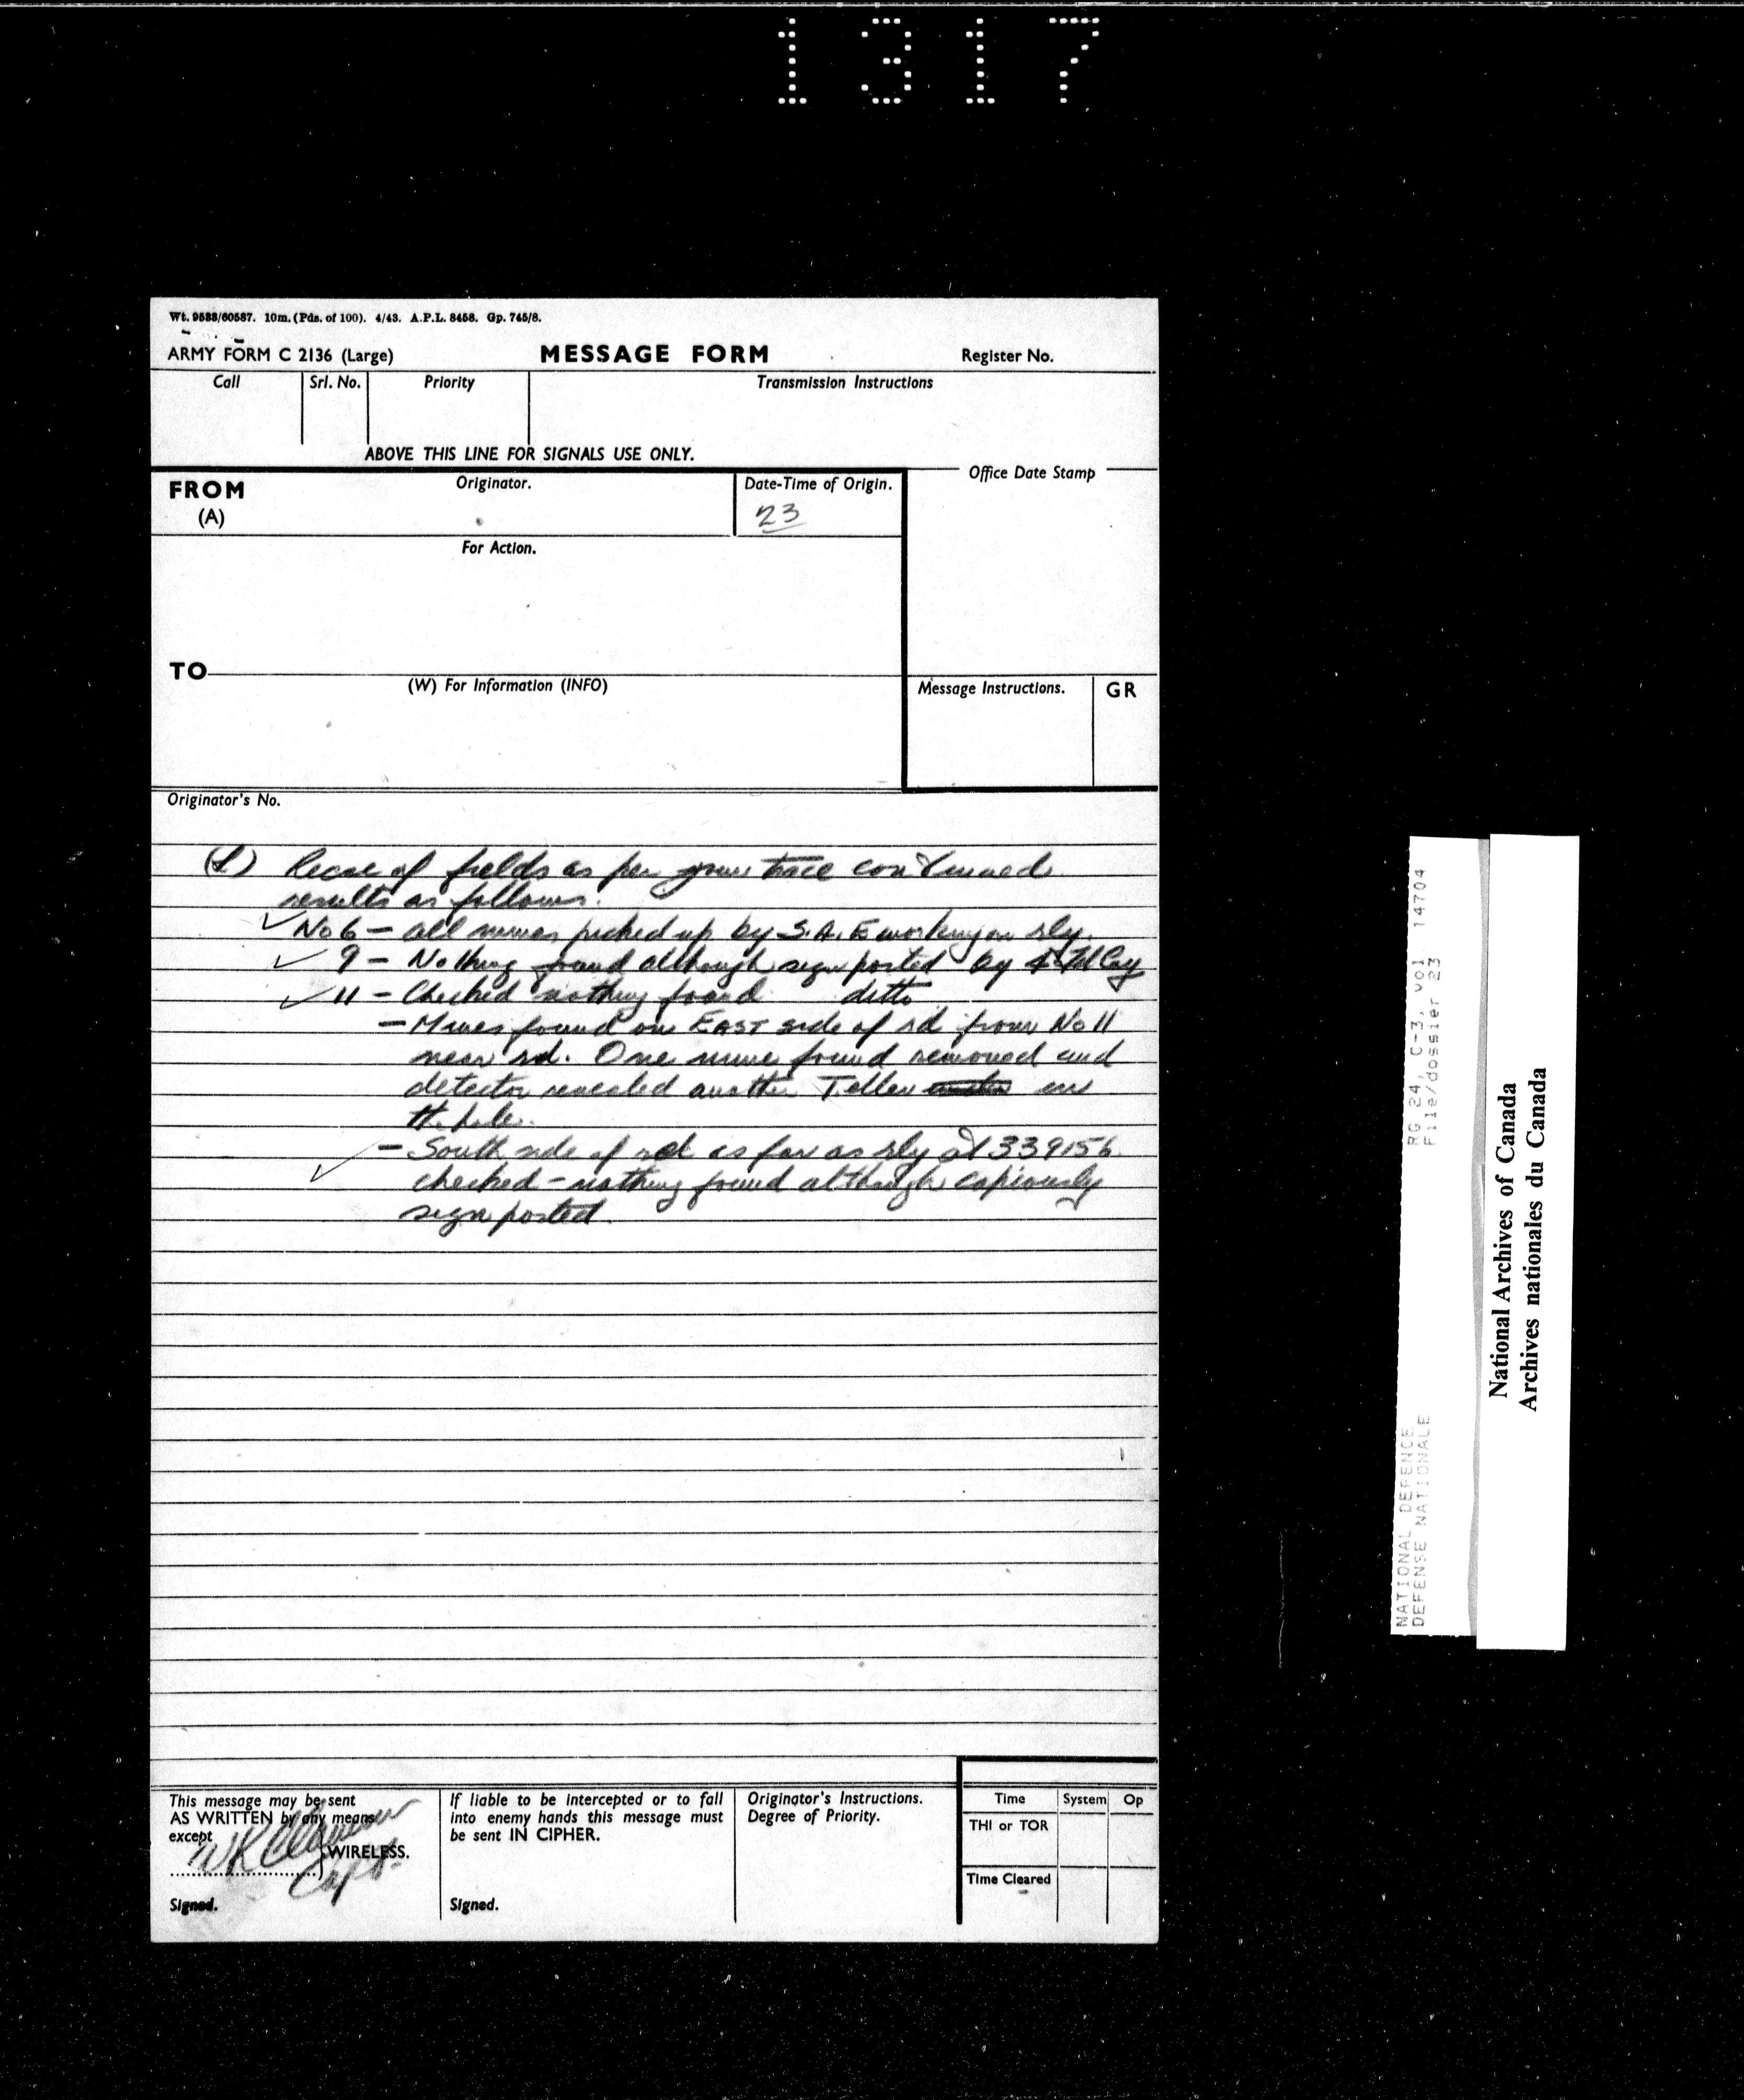 1317
Wt. 9533/60587. 10m. (Pds. of 100). 4/43. A.P.L. 8458. Gp. 745/8.
ARMY FORM C 2136 (Large) MESSAGE FORM Register No.
Call Srl. No. Priority Transmission Instructions
ABOVE THIS LINE FOR SIGNALS USE ONLY.
FROM (A) Originator. Date-Time of Origin. Office Date Stamp
23
For Action.
TO
(W) For Information (INFO) Message Instructions. GR
Originator's No.
(L) Recce of fields as per your trace continued
results as follows.
No 6 - All mines picked up by S.A.E working on rly.
9 - Nothing found although sign posted by Fd Coy
11 - Checked nothing found ditto
- Mines found on EAST side of rd from No 11
near rd. One mine found removed and
detector revealed another Teller in
the hole.
- South side of rd as far as rly at 339156
checked - nothing found although copiously
sign posted.
This message may be sent AS WRITTEN by any means except WIRELESS.
Capt.
Signed.
If liable to be intercepted or to fall into enemy hands this message must be sent IN CIPHER.
Signed.
Originator's Instructions. Degree of Priority.
Time System Op
THI or TOR
Time Cleared
NATIONAL DEFENCE RG 24, C-3, vol 14704
DEFENSE NATIONALE File/dossier 23
National Archives of Canada
Archives nationales du Canada